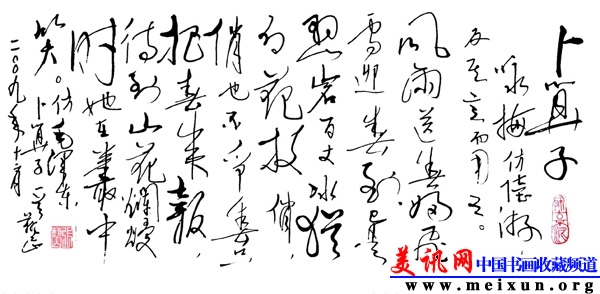 卜算子
咏梅仿陆游
反其意而用之。
风雨送春归飞
雪迎春到已是
悬岩百丈冰犹
有花枝俏，
俏也不争春
把春来报，
待到山花烂漫
时她在叢中
笑。仿毛泽东
卜算子
二００九年十一月
美讯网 中国书画收藏频道
www.meixun.org